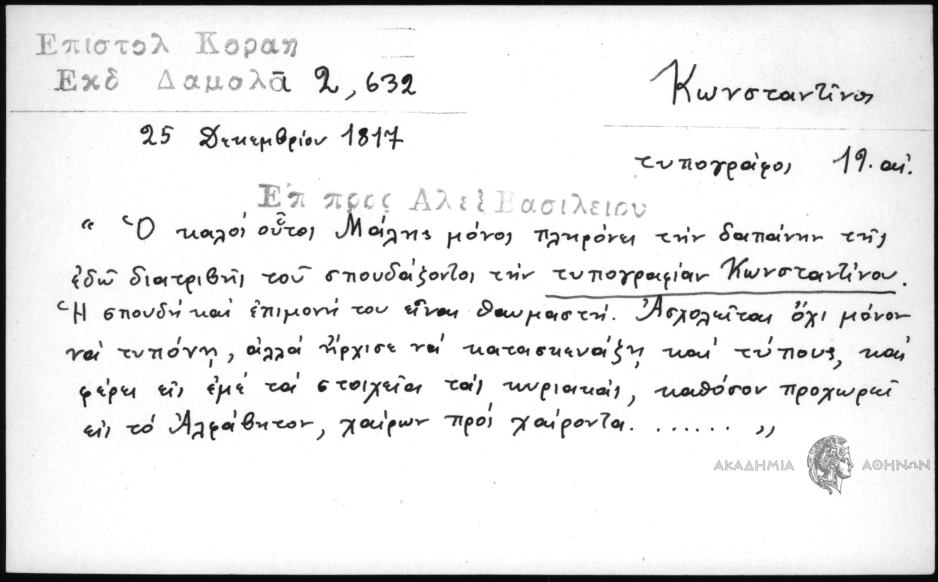 Επιστολ Κοραη
Εκδ Δαμαλᾶ 2,632
Κωνσταντῖνος
25 Δεκεμβρίου 1817
τυπογράφος 19. αἰ.
Επ προς Αλεξ Βασιλειου
“ Ὁ καλὸς οὗτος Μάλης μόνος πληρόνει τὴν δαπάνην τῆς
ἐδῶ διατριβῆς τοῦ σπουδάζοντος τὴν τυπογραφίαν Κωνσταντίνου.
Ἡ σπουδὴ καὶ ἐπιμονή του εἶναι θαυμαστή. Ἀσχολεῖται ὄχι μόνον
νὰ τυπόνῃ, ἀλλὰ ἤρχισε νὰ κατασκευάζῃ καὶ τύπους, καὶ
φέρει εἰς ἐμὲ τὰ στοιχεῖα τὰς κυριακάς, καθόσον προχωρεῖ
εἰς τὸ Ἀλφάβητον, χαίρων πρὸς χαίροντα. ...... ”
ΑΚΑΔΗΜΙΑ ΑΘΗΝΩΝ